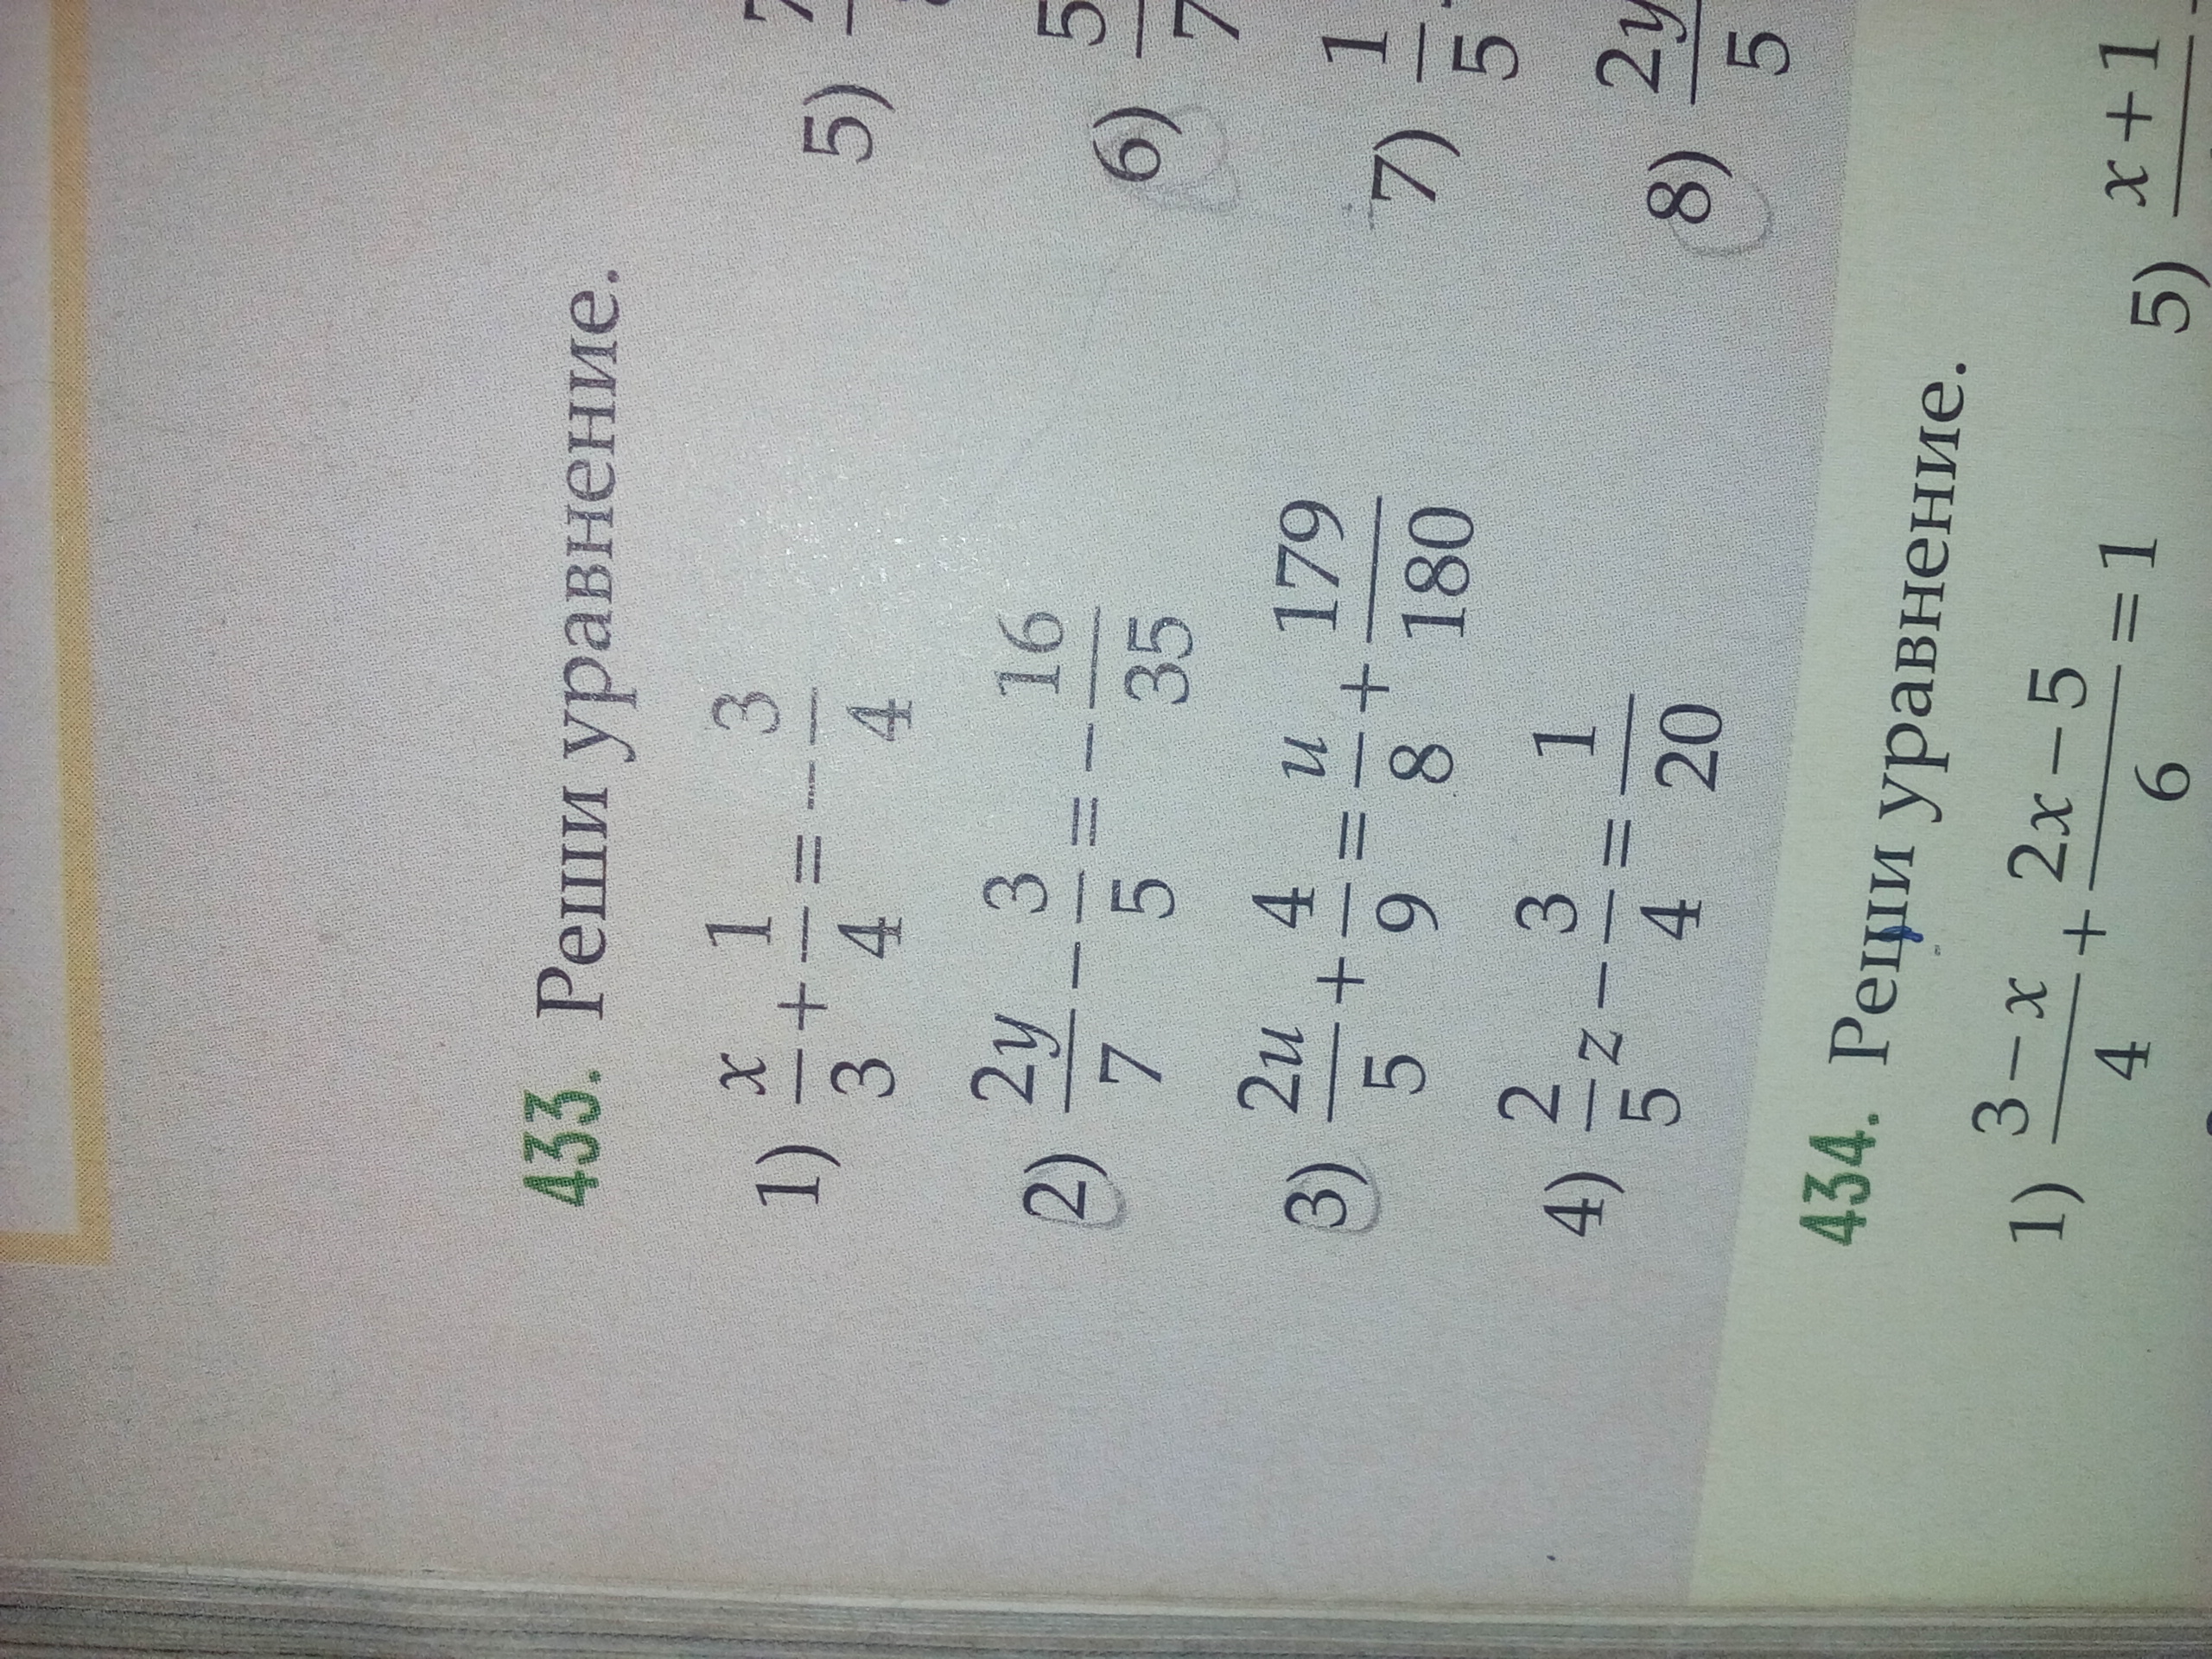 433. Реши уравнение.
1) x/3 + 1/4 = - 3/4
5)
2) 2y/7 - 3/5 = - 16/35
6) 5/7
3) 2u/5 + 4/9 = u/8 + 179/180
7) 1/5
4) 2/5 z - 3/4 = 1/20
8) 2y/5
434. Реши уравнение.
1) 3 - x/4 + 2x - 5/6 = 1
5) x + 1